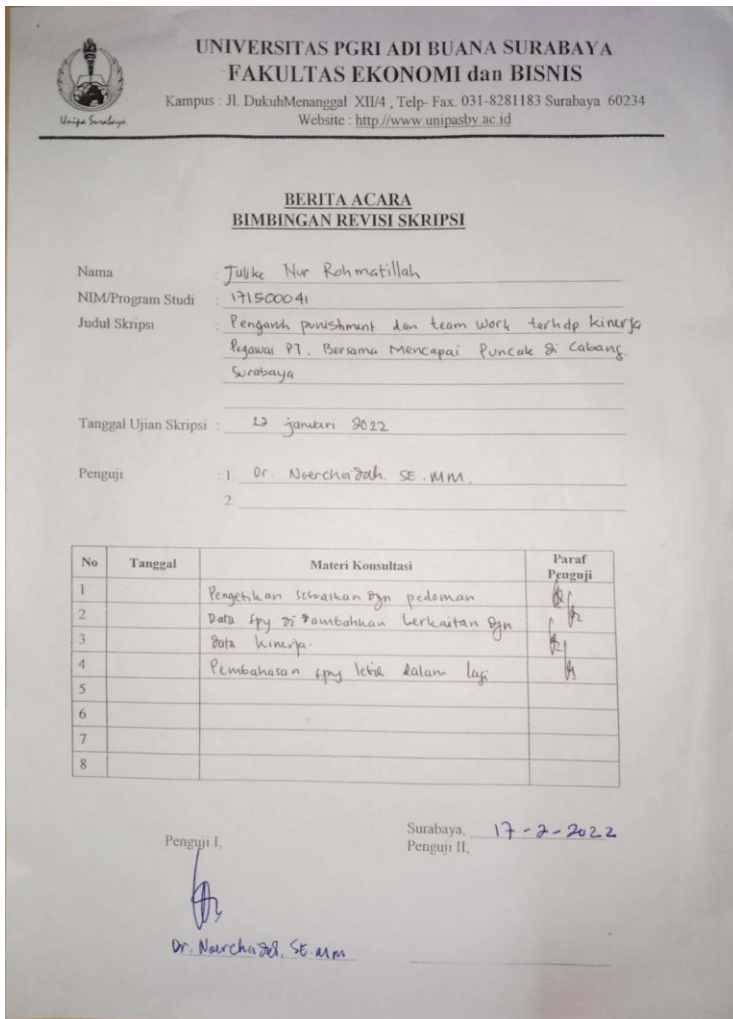 UNIVERSITAS PGRI ADI BUANA SURABAYA
FAKULTAS EKONOMI dan BISNIS
Kampus : Jl. DukuhMenanggal XII/4 , Telp- Fax. 031-8281183 Surabaya 60234
Website : http://www.unipasby.ac.id
Unipa Surabaya
BERITA ACARA
BIMBINGAN REVISI SKRIPSI
Nama : Julike Nur Rohmatillah
NIM/Program Studi : 171500041
Judul Skripsi : Pengaruh punishment dan team work terhdp kinerja
Pegawai PT. Bersama Mencapai Puncak di Cabang.
Surabaya
Tanggal Ujian Skripsi : januari 2022
Penguji : 1. Dr. Noerchoidah. SE. MM.
2.
No Tanggal Materi Konsultasi Paraf Penguji
1 Pengetikan sesuaikan dgn pedoman
2 Data spy di tambahkan berkaitan dgn
3 data kinerja.
4 Pembahasan spy lebih dalam lagi
5
6
7
8
Surabaya, 17-2-2022
Penguji I, Penguji II,
Dr. Noerchoidah, SE. MM